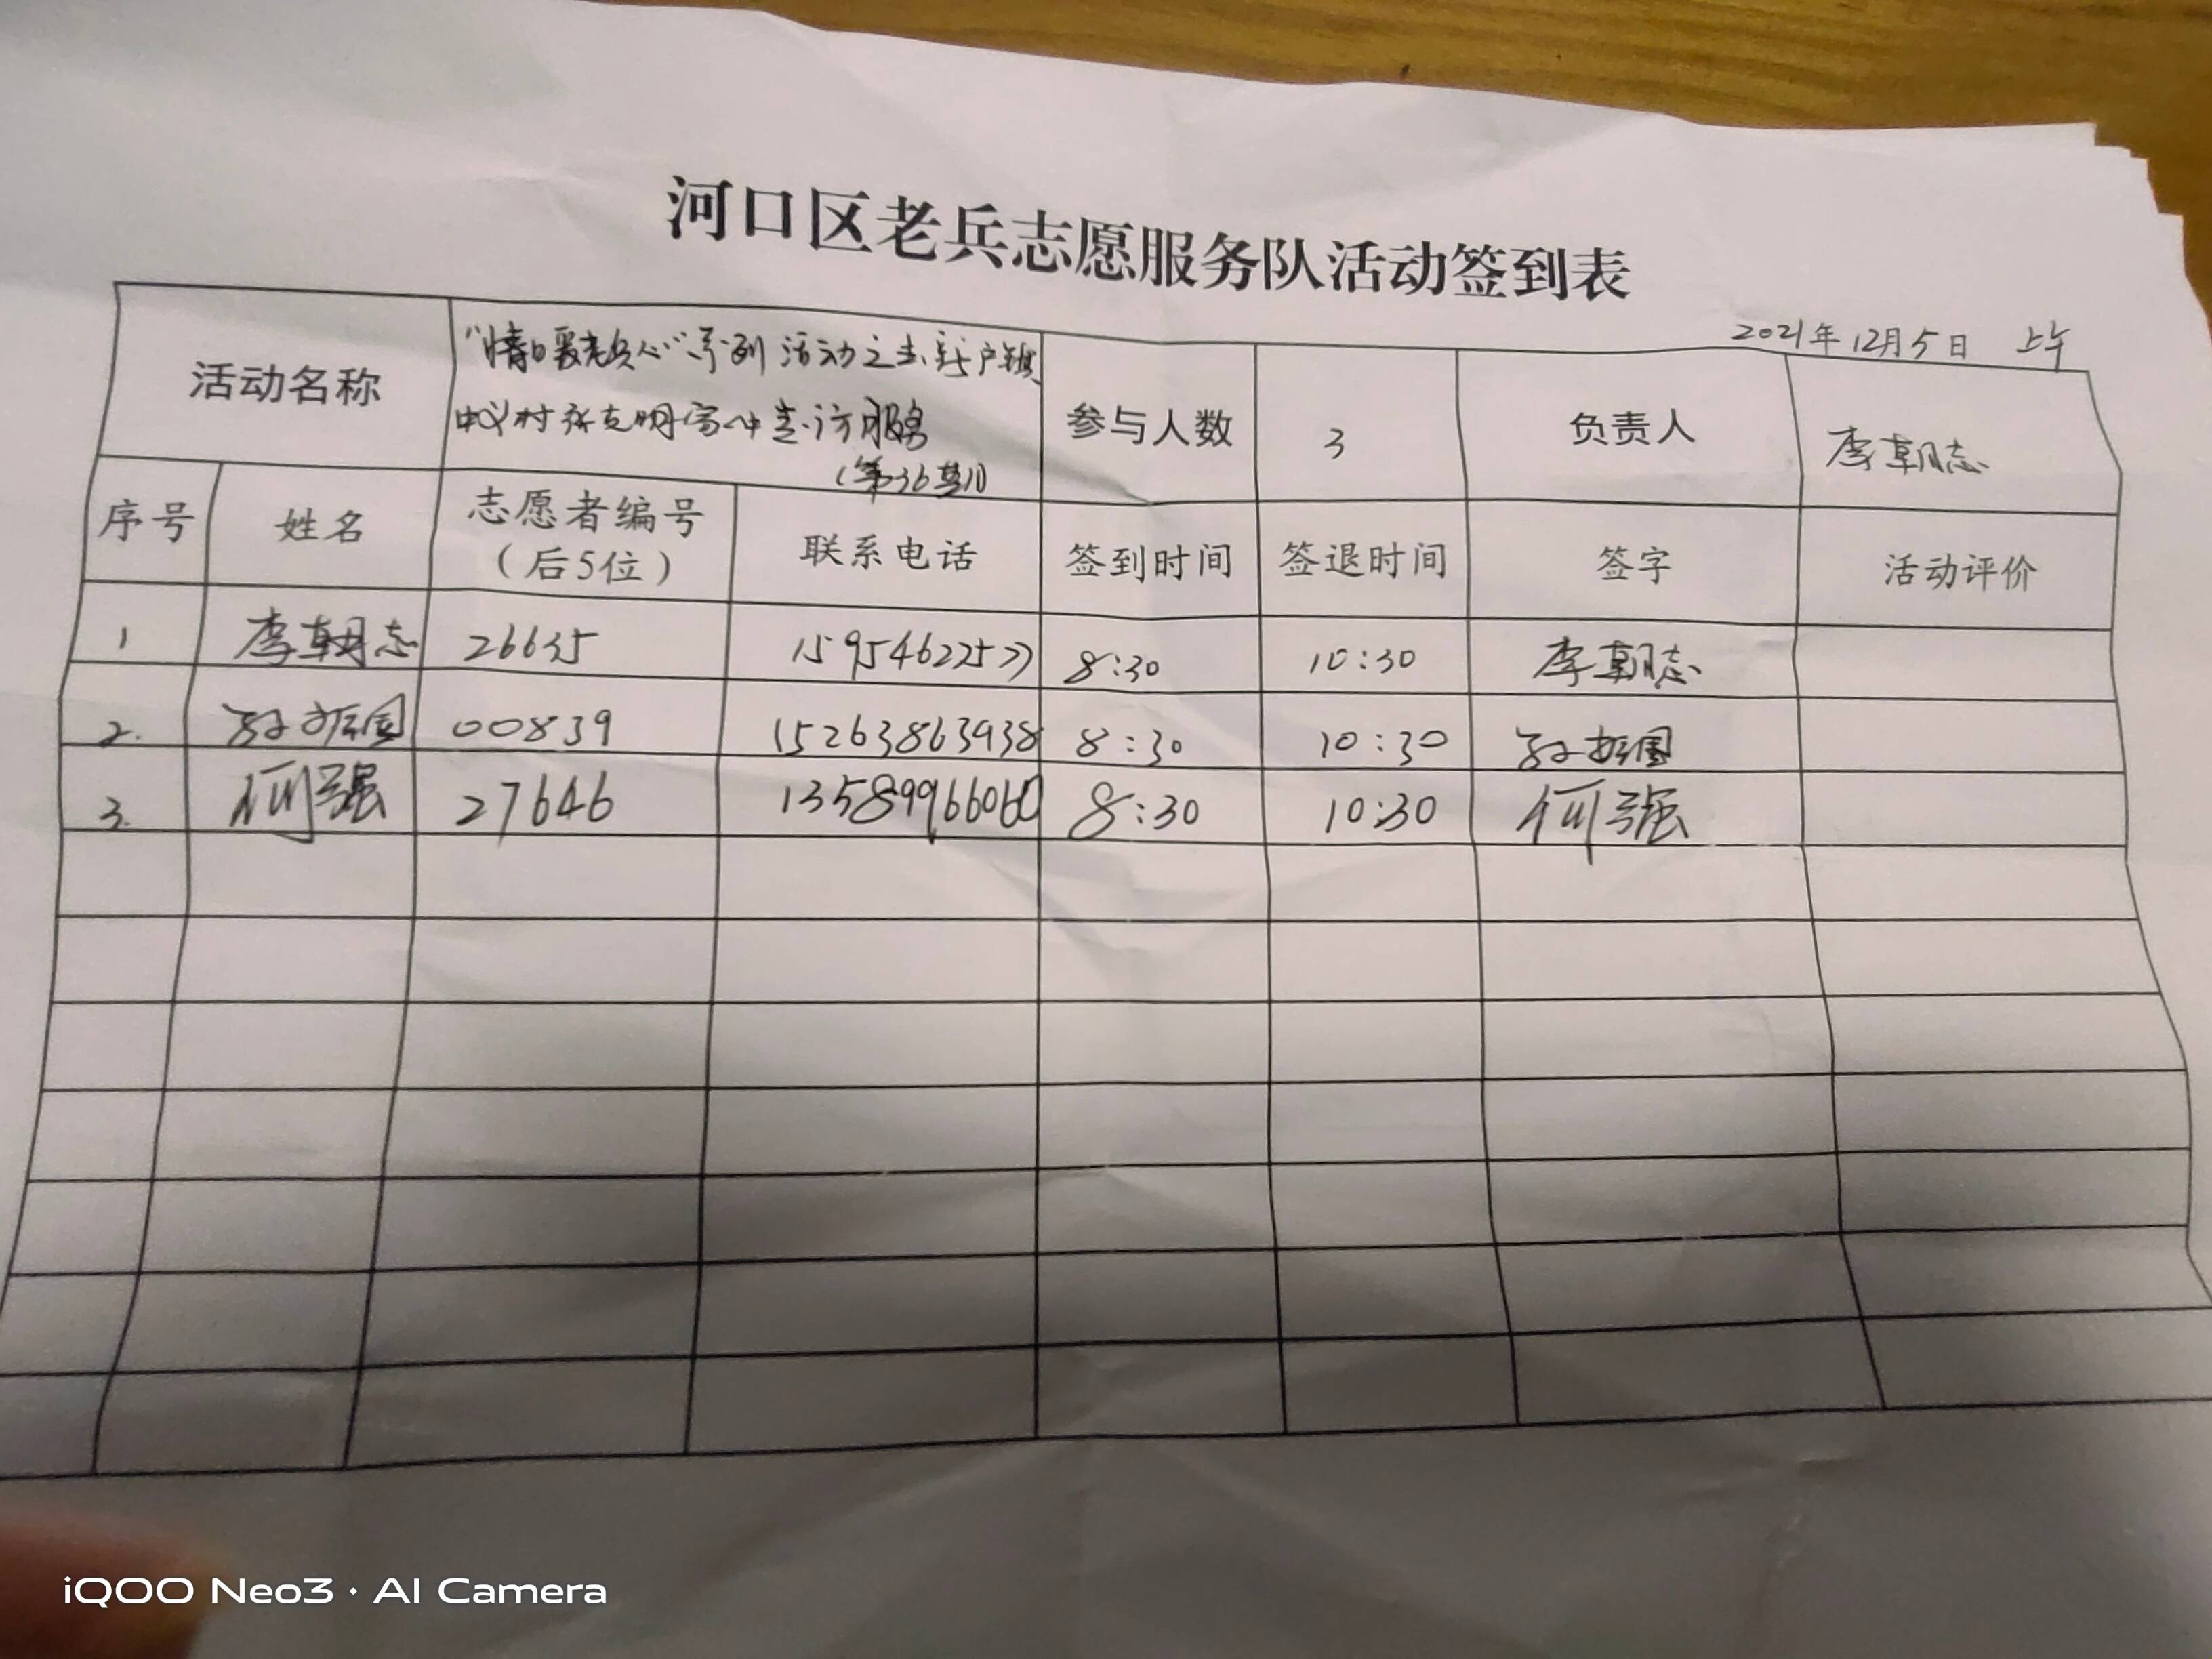 河口区老兵志愿服务队活动签到表
2021年12月5日 上午
活动名称 "情暖老兵心"系列活动之走新户镇 参与人数 3 负责人 李朝志
村 克明家中走访服务
(第36期)
序号 姓名 志愿者编号 联系电话 签到时间 签退时间 签字 活动评价
(后5位)
1 李朝志 26635 15954622577 8:30 10:30 李朝志
2. 孙振国 00839 15263863938 8:30 10:30 孙振国
3. 何强 27646 13589966060 8:30 10:30 何强
iQOO Neo3 · AI Camera